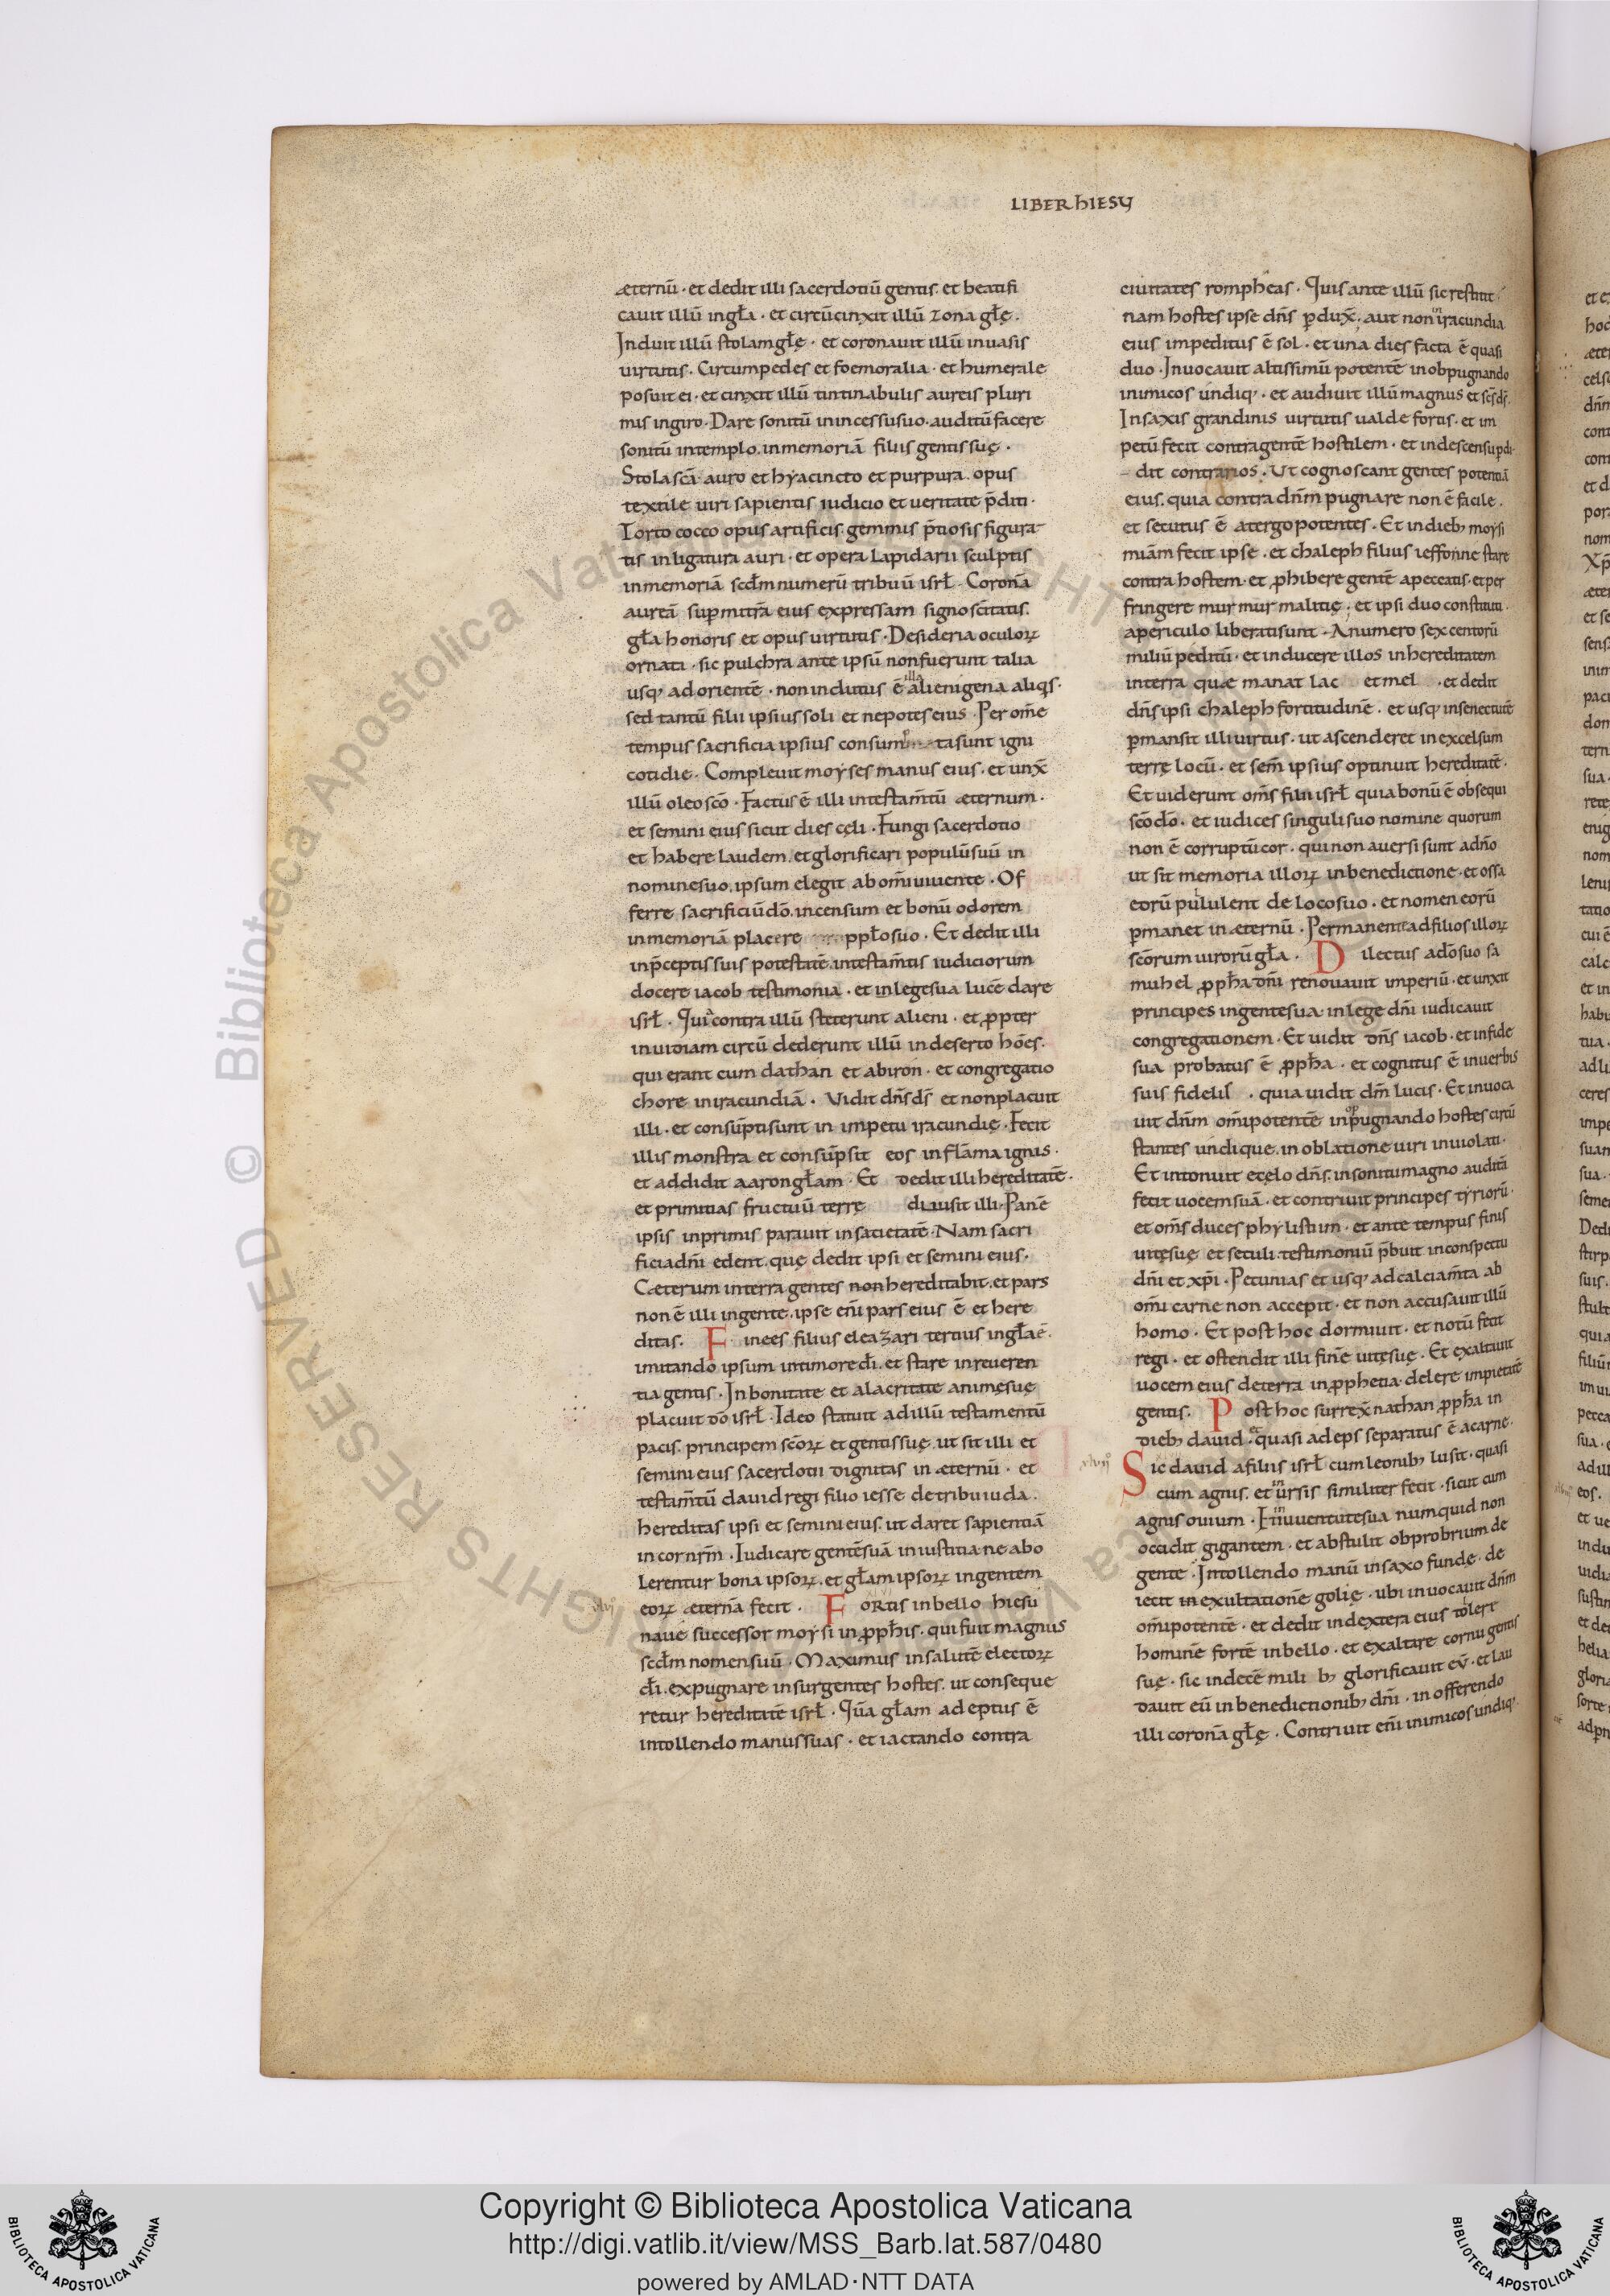 LIBER hIESV
æternū · et dedit illi sacerdotiū gentis. et beatifi
cauit illū in gła · et circūcinxit illū zona głę .
Induit illū stolam głę · et coronauit illū in uasis
uirtutis . Circumpedes et foemoralia · et humerale
posuit ei · et cinxit illū tintinabulis aureis pluri
mis in giro · Dare sonitū in incessu suo · auditū facere
sonitū in templo . in memoriā filiis gentis suę .
Stola scā · auro et hyacincto et purpura . opus
textile uiri sapientis iudicio et ueritate p̄diti ·
Torto cocco opus artificis . gemmis p̄tiosis figura
tis in ligatura auri · et opera lapidarii sculptis
in memoriā scd̄m numerū tribuū isrł · Coronā
aureā sup mitrā eius expressam signo sc̄itatis .
gła honoris et opus uirtutis · Desideria oculoꝝ
ornata · sic pulchra ante ipsū non fuerunt talia
usq; ad orientē · non indutus ē illa alienigena aliqs ·
sed tantū filii ipsius soli et nepotes eius · Per om̄e
tempus sacrificia ipsius consumpta sunt igni
cotidie · Compleuit moyses manus eius . et unx̄
illū oleo sc̄o · Factus ē illi in testam̄tū æternum ·
et semini eius sicut dies cęli · Fungi sacerdotio
et habere laudem . et glorificari populū suū in
nomine suo . ipsum elegit ab om̄i uiuente · Of
ferre sacrificiū dō . incensum et bonū odorem
in memoriā placere ppło suo · Et dedit illi
in p̄ceptis suis potestatē . in testam̄tis iudiciorum
docere iacob testimonia · et in lege sua lucē dare
isrł · Quia contra illū steterunt alieni · et ꝓpter
inuidiam circū dederunt illū in deserto hōes .
qui erant cum dathan et abiron · et congregatio
chore in iracundiā · Vidit dn̄s ds̄ et non placuit
illi · et consūpti sunt in impetu iracundię · Fecit
illis monstra et consūpsit eos in flāma ignis ·
et addidit aaron głam · Et dedit illi hereditatē ·
et primitias fructuū terrę diuisit illi · Panē
ipsis in primis parauit in satietatē · Nam sacri
ficia dn̄i edent . quę dedit ipsi et semini eius .
Cæterum in terra gentes non hereditabit . et pars
non ē illi in gente . ipse en̄i pars eius ē et here
ditas . Finees filius eleazari tertius in gła ē .
imitando ipsum in timore dī . et stare in reueren
tia gentis · In bonitate et alacritate animę suę
placuit dō isrł · Ideo statuit ad illū testamentū
pacis . principem sc̄oꝝ et gentis suę . ut sit illi et
semini eius sacerdotii dignitas in æternū · et
testam̄tū dauid regi filio iesse de tribu iuda .
hereditas ipsi et semini eius . ut daret sapientiā
in cor nr̄m · Iudicare gentē suā in iustitia ne abo
lerentur bona ipsoꝝ . et głam ipsoꝝ in gentem
eoꝝ æternā fecit . Fortis in bello hiesu
naue successor moysi in ꝓpħis . qui fuit magnus
scd̄m nomen suū · Maximus in salutē electoꝝ
dī . expugnare insurgentes hostes . ut conseque
retur hereditatē isrł · Quā głam adeptus ē
in tollendo manus suas · et iactando contra
ciuitates rompheas · Quis ante illū sic restitit
nam hostes ipse dn̄s p̱dux̄ ; aut non in iracundia
eius impeditus ē sol · et una dies facta ē quasi
duo · Inuocauit altissimū potentē in obpugnando
inimicos undiq; · et audiuit illū magnus et sc̄s ds̄ .
In saxis grandinis uirtutis ualde fortis · et im
petū fecit contra gentē hostilem · et in descensu p̱di
dit contrarios · Ut cognoscant gentes potentiā
eius . quia contra dn̄m pugnare non ē facile .
et secutus ē a tergo potentes · Et in dieb; moysi
miām fecit ipse . et chaleph filius ieffonne stare
contra hostem · et ꝓhibere gentē a peccatis · et per
fringere murmur malitię ; et ipsi duo constituti ·
a periculo liberati sunt · A numero sexcentorū
miliū peditū · et inducere illos in hereditatem
in terra quæ manat lac et mel · et dedit
dn̄s ipsi chaleph fortitudinē . et usq; in senectutē
p̱mansit illi uirtus · ut ascenderet in excelsum
terrę locū . et sem̄ ipsius optinuit hereditatē .
Et uiderunt om̄s filii isrł quia bonū ē obsequi
sc̄o dō . et iudices singuli suo nomine quorum
non ē corruptū cor · qui non auersi sunt a dn̄o
ut sit memoria illoꝝ in benedictione · et ossa
eorū pululent de loco suo · et nomen eorū
p̱manet in æternū · Permanent ad filios illoꝝ
sc̄orum uirorū gła . Dilectus a dō suo sa
muhel ꝓpħa dn̄i renouauit imperiū · et unxit
principes in gente sua . in lege dn̄i iudicauit
congregationem · Et uidit dn̄s iacob · et in fide
sua probatus ē ꝓpħa · et cognitus ē in uerbis
suis fidelis · quia uidit dm̄ lucis · Et inuoca
uit dn̄m om̄ipotentē in oppugnando hostes circū
stantes undique . in oblatione uiri inuiolati ·
Et intonuit e cęlo dn̄s . in sonitu magno auditā
fecit uocem suā · et contriuit principes tyriorū ·
et om̄s duces phylistiim · et ante tempus finis
uitę suę et seculi · testimoniū p̄buit in conspectu
dn̄i et xp̄i · Pecunias et usq; ad calciam̄ta ab
om̄i carne non accepit · et non accusauit illū
homo · Et post hoc dormiuit · et notū fecit
regi · et ostendit illi finē uitę suę · Et exaltauit
uocem eius de terra in ꝓphetia . delere impietatē
gentis . Post hoc surrex̄ nathan ꝓpħa in
dieb; dauid · et quasi adeps separatus ē a carne ·
Sic dauid a filiis isrł cum leonib; lusit · quasi
cum agnis . et in ursis similiter fecit · sicut cum
agnis ouium · In iuuentute sua numquid non
occidit gigantem · et abstulit obprobrium de
gente · In tollendo manū in saxo fundę · de
iecit exultationē golię · ubi inuocauit dn̄m
om̄ipotentē · et dedit in dextera eius tollere
hominē fortē in bello · et exaltare cornu gentis
suę · sic in decē mili b; glorificauit eū · et lau
dauit eū in benedictionib; dn̄i · in offerendo
illi coronā głę · Contriuit en̄i inimicos undiq; ·
Copyright © Biblioteca Apostolica Vaticana
http://digi.vatlib.it/view/MSS_Barb.lat.587/0480
powered by AMLAD·NTT DATA